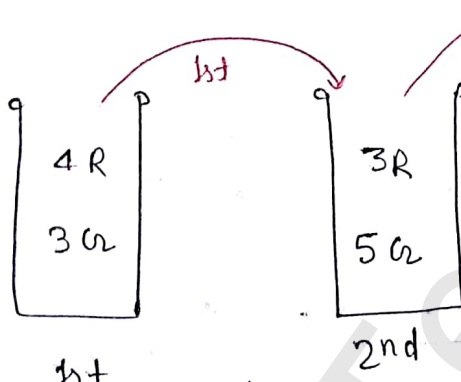 1st
4 R
3 G
3R
5 G
1st
2nd